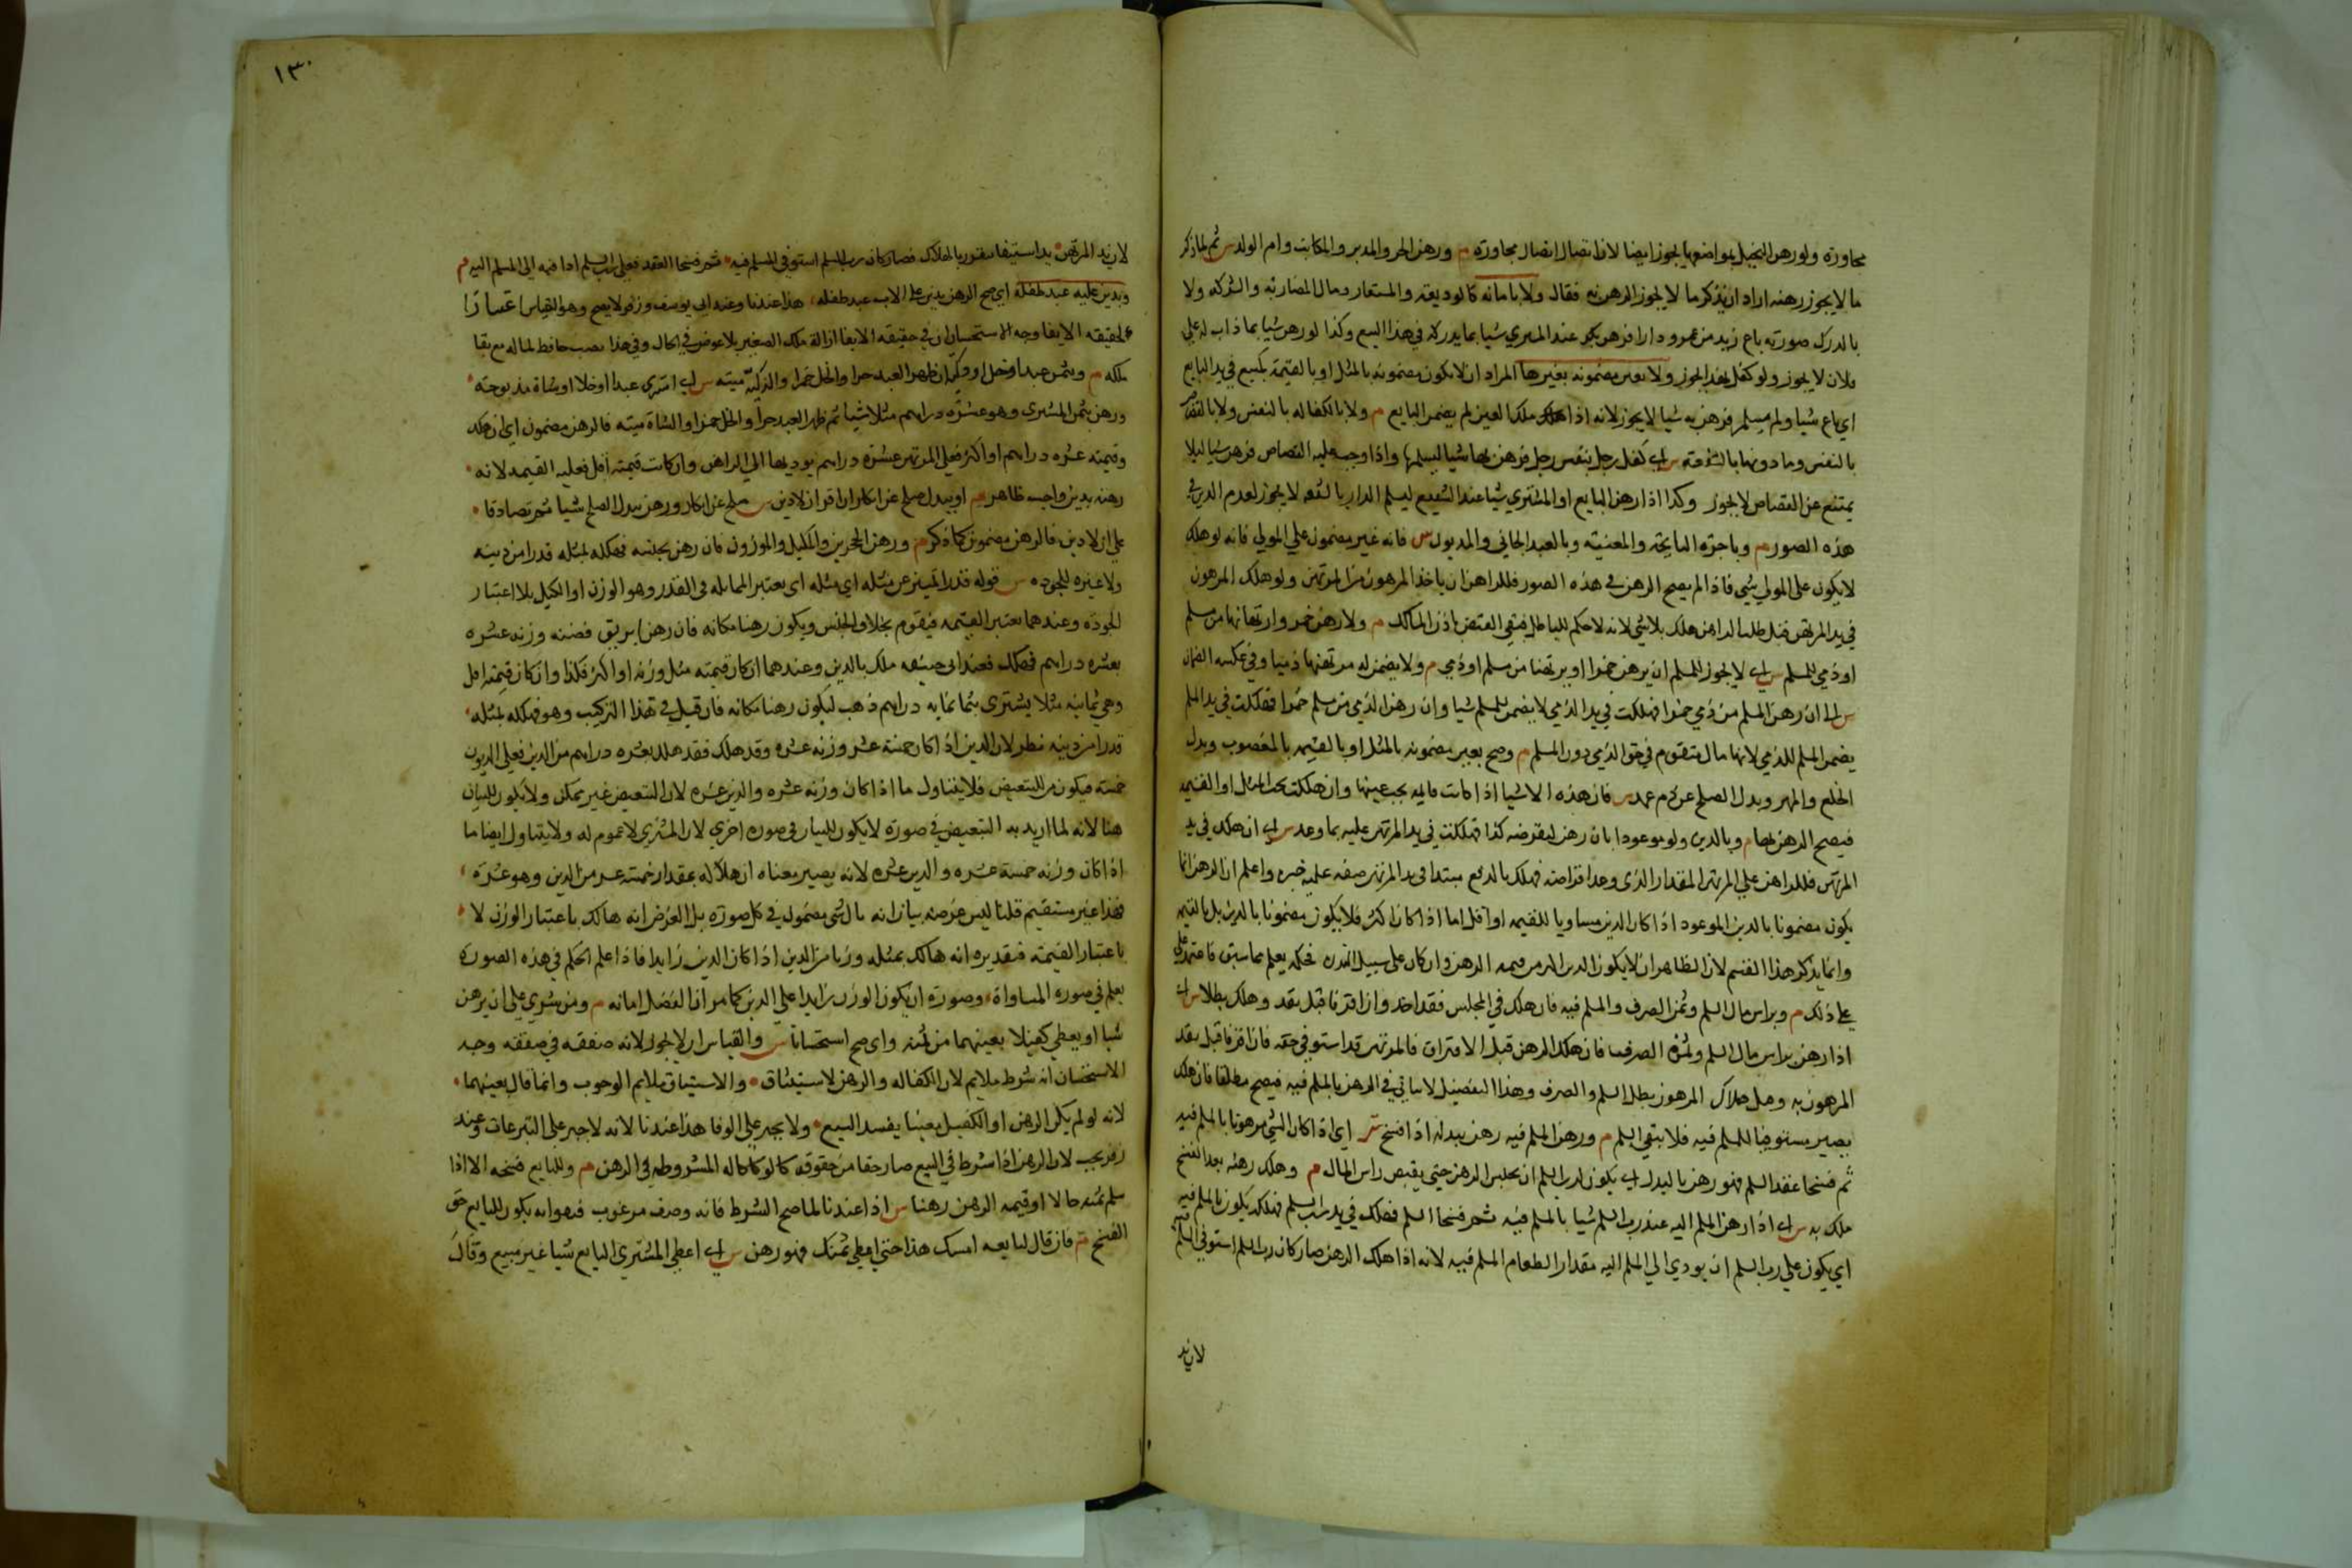 مجاورة ولو رهن النخيل بمواضعها يجوز ايضا لان اتصال اتصال مجاورة م ورهن الحر والمدبر والمكاتب وام الولد س ثم لما ذكر
ما لا يجوز رهنه اراد ان يذكر ما لا يجوز الرهن به فقال ولا بامانة كالوديعة والمستعار ومال المضاربة والشركة ولا
بالدرك صورته باع زيد من عمرو دارا فرهن بكر عند المشتري شيا بما يدركه في هذا البيع وكذا لو رهن شيا بما ذاب له على
فلان لا يجوز ولو كفل بهذا يجوز ولا بعين مضمونة بغيرها المراد ان لا يكون مضمونة بالمثل او بالقيمة كمبيع في يد البايع
اي باع شيا ولم يسلم فرهن به شيا لا يجوز لانه اذا هلك ملك العين لم يضمن البايع م ولا بالكفالة بالنفس ولا بالقصاص
بالنفس وما دونها بالشفعة س اي كفل رجل بنفس رجل فرهن بها شيا ليسلمها واذا وجب عليه القصاص فرهن شيا ليلا
يمتنع عن القصاص لا يجوز وكذا اذا رهن البايع او المشتري شيا عند الشفيع ليسلم الدار بالشفعة لا يجوز لعدم الدين في
هذه الصور م وباجرة النايحة والمغنية وبالعبد الجاني والمديون س فانه غير مضمون علي المولي فانه لو هلك
لا يكون على المولي شي فاذا لم يصح الرهن في هذه الصور فللراهن ان ياخذ المرهون من المرتهن ولو هلك المرهون
في يد المرتهن قبل طلب الراهن هلك بلا شي لانه لا حكم للباطل فبقي القبض باذن المالك م ولا رهن خمر وارتهانها من مسلم
او ذمي للمسلم س اي لا يجوز للمسلم ان يرهن خمرا او يرتهنا من مسلم او ذمي م ولا يضمن له مرتهنها ذميا وفي عكسه الضمان
س اي ان رهن المسلم من ذمي خمرا فهلكت في يد الذمي لا يضمن للمسلم شيا وان رهن الذمي من مسلم خمرا فهلكت في يد المسلم
يضمن المسلم للذمي لانها مال متقوم في حق الذمي دون المسلم م وصح بعين مضمونة بالمثل او بالقيمة بالمغصوب وبدل
الخلع والمهر وبدل الصلح عن دم عمد س فان هذه الاشيا اذا كانت قايمة يجب عينها وان هلكت يجب المثل او القيمة
فيصح الرهن بها م وبالدين ولو موعودا بان رهن ليقرضه كذا فهلكت في يد المرتهن عليه بما وعد س اي ان هلك في يد
المرتهن فللراهن علي المرتهن المقدار الذي وعد اقراضه فهلك بالدفع مبتدا في يد المرتهن صفة عليه خبره واعلم ان الرهن انما
يكون مضمونا بالدين الموعود اذا كان الدين مساويا للقيمة او اقل اما اذا كان اكثر فلا يكون مضمونا بالدين بل بالقيمة
وانما يذكر هذا القسم لان الظاهر ان لا يكون الدين اكثر من قيمة الرهن وان كان على سبيل الندرة فحكمه يعلم مما سبق فاعتمد على
علي ذلك م وبراس مال السلم وثمن الصرف والمسلم فيه فان هلك في المجلس فقد اخذ وان افترقا قبل نقد وهلك بطلا س اي
اذا رهن براس مال السلم وثمن الصرف فان هلك الرهن قبل الافتراق فالمرتهن قد استوفي حقه فان افترقا قبل نقد
المرهون به وقبل هلاك المرهون بطل السلم والصرف وهذا التفصيل لا ياتي في الرهن بالمسلم فيه فيصح مطلقا فان هلك
يصير مستوفيا للمسلم فيه فلا يبقي السلم م ورهن المسلم فيه رهن ببدله اذا فسخ س اي اذا كان الشي مرهونا بالمسلم فيه
ثم فسخا عقد السلم فهو رهن بالبدل اي يكون لرب السلم ان يحبس الرهن حتي يقبض راس المال م وهلك رهنه بعد الفسخ
هلك به س اي اذا رهن المسلم اليه عند رب السلم شيا بالمسلم فيه ثم فسخا السلم فهلك في يد رب السلم فهلكه يكون بالمسلم فيه
اي يكون علي رب السلم ان يودي الي المسلم اليه مقدار الطعام المسلم فيه لانه اذا هلك الرهن صار كان رب السلم استوفي المسلم فيه
لان يد
١٣٠
لان يد المرتهن يد استيفا يتقرر بالهلاك فصار كان رب السلم استوفي المسلم فيه ثم فسخا العقد فعلي رب السلم ادا فيه الي المسلم اليه م
وبدين عليه عبد طفله اي صح الرهن بدين علي الاب عبد طفله هذا عندنا وعند ابي يوسف وزفر لا يصح وهو القياس اعتبارا
لحقيقة الايفا وجه الاستحسان ان في حقيقة الايفا ازالة ملك الصغير بلا عوض في الحال وفي هذا نصب حافظ لماله مع بقا
ملكه م وبثمن عبد او خل او ذكية ان ظهر العبد حرا والخل خمرا والذكية ميتة س اي اشتري عبدا او خلا او شاة مذبوحة
ورهن بثمن المشتري وهو عشرة دراهم مثلا شيا ثم ظهر العبد حرا والخل خمرا والشاة ميتة فالرهن مضمون اي ان هلك
وقيمته عشرة دراهم او اكثر فعلي المرتهن عشرة دراهم يوديها الي الراهن وان كانت قيمته اقل فعليه القيمة لانه
رهنه بدين واجب ظاهر م او ببدل صلح عن انكار ان اقر ان لا دين س صلح عن انكار ورهن ببدل الصلح شيا ثم تصادقا
علي ان لا دين فالرهن مضمون كما ذكر م ورهن الحجرين والمكيل والموزون فان رهن بجنسه فهلكه بمثله قدرا من دينه
ولا عبرة للجودة س قوله قدرا تمييز عن مثله اي مثله اي يعتبر المماثلة في القدر وهو الوزن او الكيل بلا اعتبار
الجودة وعندهما يعتبر القيمة فيقوم بخلاف الجنس ويكون رهنا مكانه فان رهن ابريق فضة وزنه عشرة
بعشرة دراهم فهلك فعند ابي حنيفة هلك بالدين وعندهما ان كان قيمته مثل وزنه او اكثر فكذا وان كان قيمته اقل
وهي ثمانية مثلا يشتري بثمانية دراهم ذهب ليكون رهنا مكانه فان قيل في هذا التركيب وهو فهلكه بمثله
قدرا من دينه نظر لان الدين اذا كان خمسة عشر وزنه عشرة وقد هلك فقد هلك بعشرة دراهم من الدين فعلي المديون
خمسة فيكون من للتبعيض فلا يتناول ما اذا كان وزنه عشرة والدين عشرة لان التبعيض غير ممكن ولا يكون للبيان
هنا لانه لما اريد به التبعيض في صورة لا يكون للبيان في صورة اخري لان المشترك لا عموم له ولا يتناول ايضا ما
اذا كان وزنه خمسة عشرة والدين عشرة لانه يصير معناه ان هلاكه بمقدار خمسة عشر من الدين وهو عشرة
فهذا غير مستقيم قلنا ليس غرضه بيان انه باي شي مضمون في كل صورة بل الغرض انه هالك باعتبار الوزن لا
باعتبار القيمة فتقديره انه هالك بمثله وزنا من الدين اذا كان الدين زايدا فاذا علم الحكم في هذه الصورة
يعلم في صورة المساواة وصورة ان يكون الوزن زايدا علي الدين كما مر ان الفضل امانة م ومن شري علي ان يرهن
شيا او يعطي كفيلا بعينهما من ثمنه وابي صح استحسانا س والقياس ان لا يجوز لانه صفقة في صفقة وجه
الاستحسان انه شرط ملايم لان الكفالة والرهن لاستيثاق والاستيثاق يلايم الوجوب وانما قال بعينهما
لانه لو لم يكن الرهن او الكفيل معينا يفسد البيع ولا يجبر علي الوفا هذا عندنا لانه لا جبر علي التبرعات وعند
زفر يجب لان الرهن اذا شرط في البيع صار حقا من حقوقه كالوكالة المشروطة في الرهن م وللبايع فسخه الا اذا
سلم ثمنه حالا او قيمة الرهن رهنا س اذا عندنا لما صح الشرط فانه وصف مرغوب فبفواته يكون للبايع حق
الفسخ م فان قال لبايعه امسك هذا حتي اعطي ثمنك فهو رهن س اي اعطي المشتري البايع شيا غير مبيع وقال